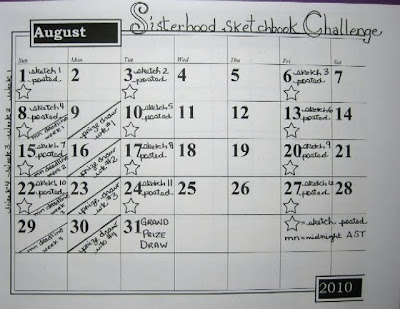 Sisterhood Sketchbook Challenge
August
Sun Mon Tue Wed Thu Fri Sat
1 sketch 1 posted 2 3 sketch 2 posted 4 5 6 sketch 3 posted 7
8 sketch 4 posted mn deadline week 1 9 prize draw wk #1 10 sketch 5 posted 11 12 13 sketch 6 posted 14
15 sketch 7 posted mn deadline week 2 16 prize draw wk #2 17 sketch 8 posted 18 19 20 sketch 9 posted 21
22 sketch 10 posted mn deadline week 3 23 prize draw wk #3 24 sketch 11 posted 25 26 27 sketch 12 posted 28
29 mn deadline week 4 30 prize draw wk #4 31 GRAND PRIZE DRAW
= sketch posted
mn = midnight AST
week 1
week 2
week 3
week 4
2010